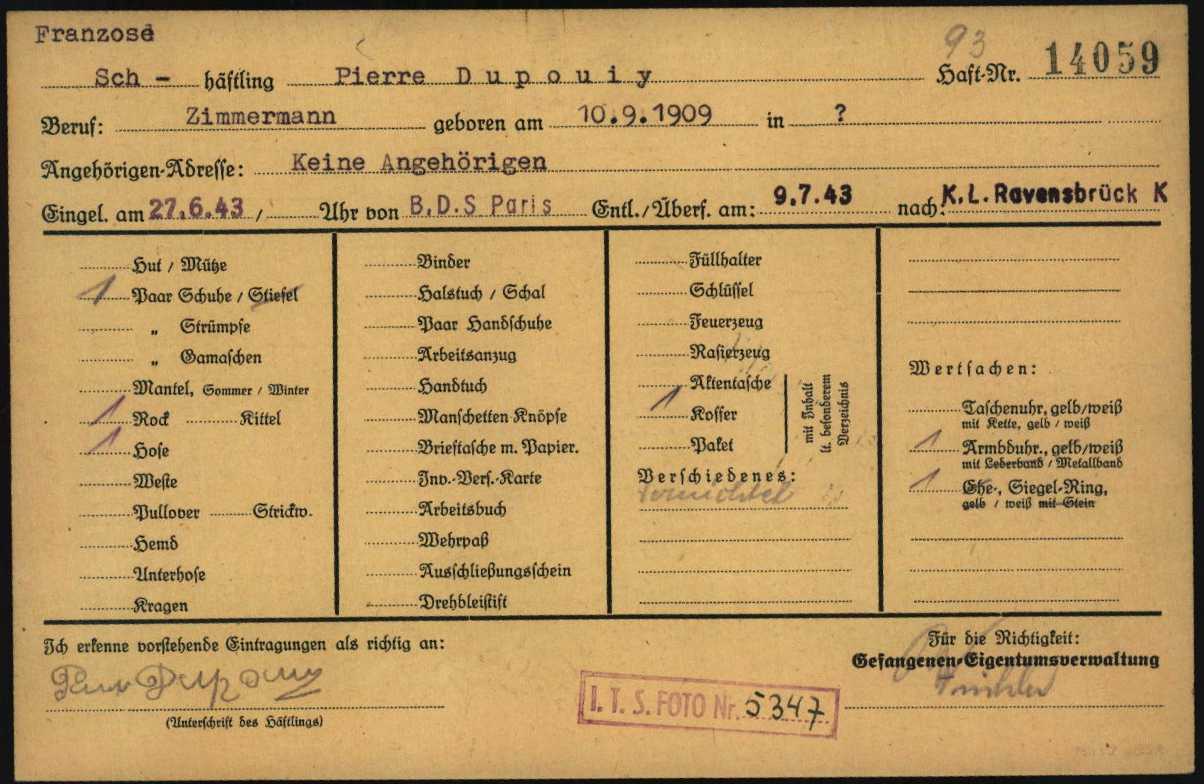 Franzose
93
Sch - häftling Pierre Dupouiy Haft-Nr. 14059
Beruf: Zimmermann geboren am 10.9.1909 in ?
Angehörigen-Adresse: Keine Angehörigen
Eingel. am 27.6.43 / Uhr von B.D.S Paris Entl./Überf. am: 9.7.43 nach: K.L. Ravensbrück K
Hut / Mütze
1 Paar Schuhe / Stiefel
" Strümpfe
" Gamaschen
Mantel, Sommer / Winter
1 Rock Kittel
1 Hose
Weste
Pullover Strickw.
Hemd
Unterhose
Kragen
Binder
Halstuch / Schal
Paar Handschuhe
Arbeitsanzug
Handtuch
Manschetten-Knöpfe
Brieftasche m. Papier.
Inv.-Vers.-Karte
Arbeitsbuch
Wehrpaß
Ausschließungsschein
Drehbleistift
Füllhalter
Schlüssel
Feuerzeug
Rasierzeug
Aktentasche
1 Koffer
Paket
mit Inhalt
lt. besonderem
Verzeichnis
Verschiedenes:
vernichtet
Wertsachen:
Taschenuhr, gelb/weiß
mit Kette, gelb / weiß
1 Armbduhr., gelb/weiß
mit Lederband / Metallband
1 Ehe-, Siegel-Ring,
gelb / weiß mit Stein
Ich erkenne vorstehende Eintragungen als richtig an:
(Unterschrift des Häftlings)
Für die Richtigkeit:
Gefangenen-Eigentumsverwaltung
I. T. S. FOTO Nr. 5347